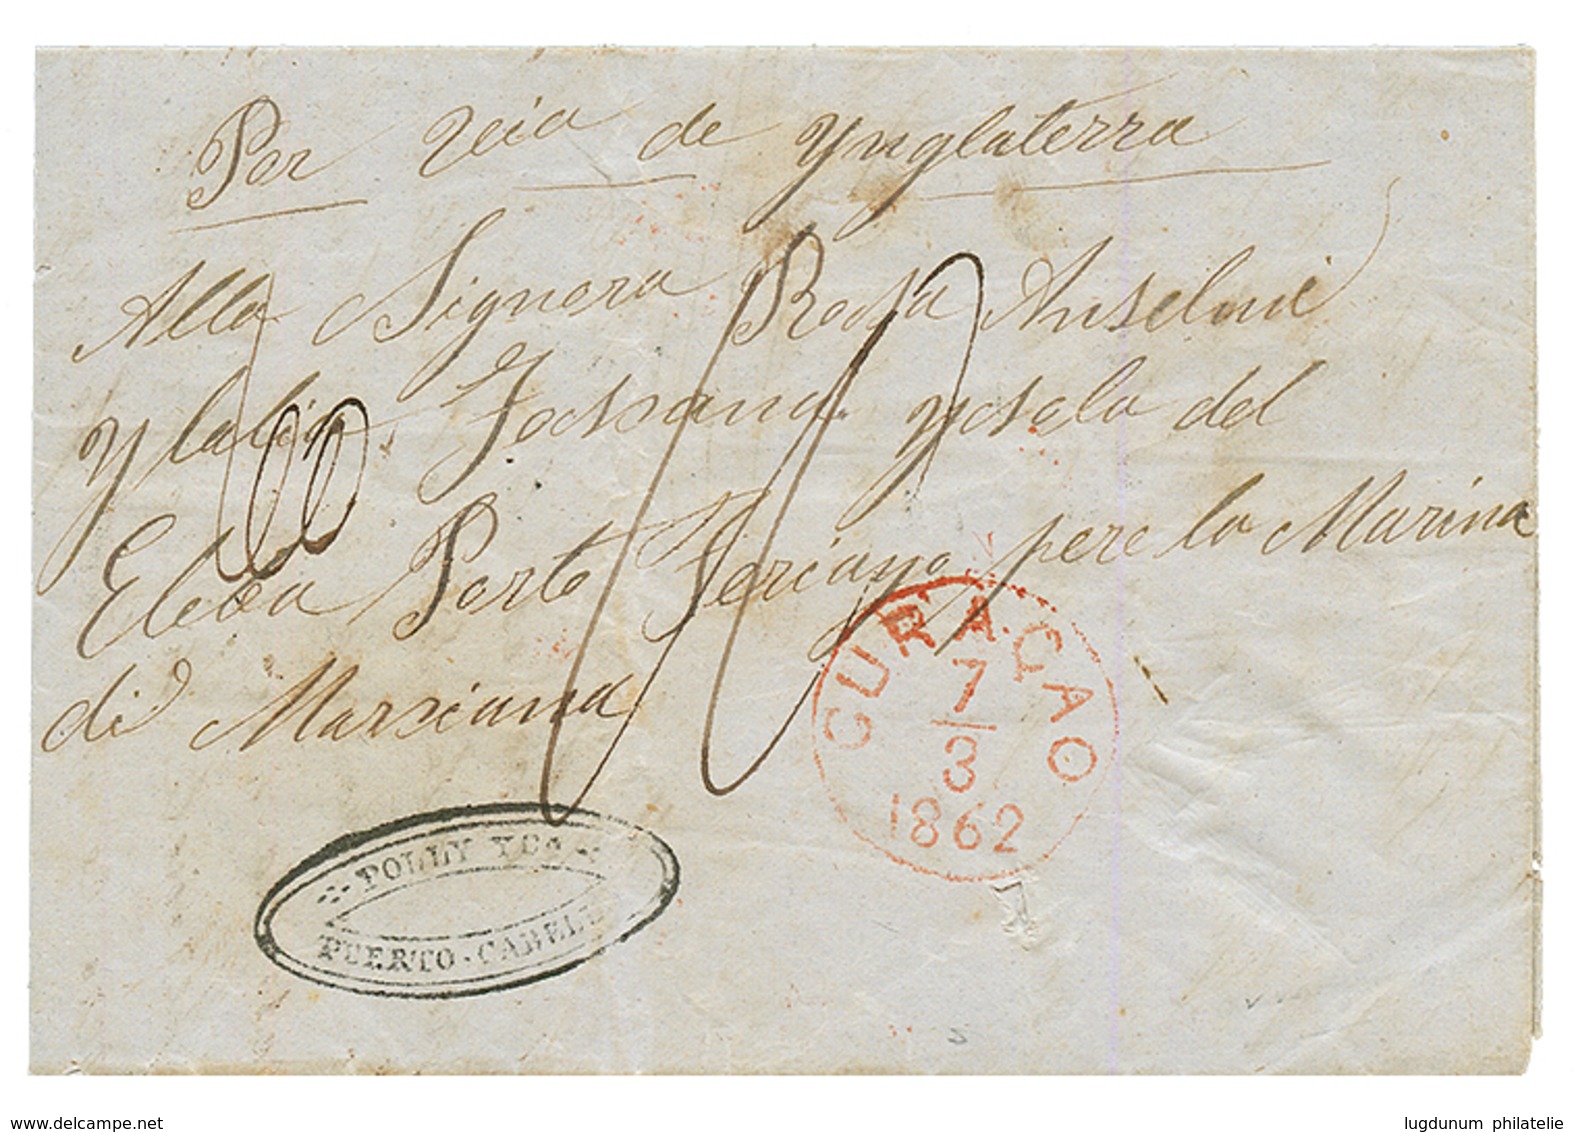 Per Veia de Ynglaterra
Alla Signora Rossa Anselmi
Ytalia Toscana ysola del
Eleba Porto Feriayo pere la Marina
di Marciana
CURAÇAO
7
3
1862
POLLY YCA
PUERTO-CABELL
www.delcampe.net
lugdunum philatelie